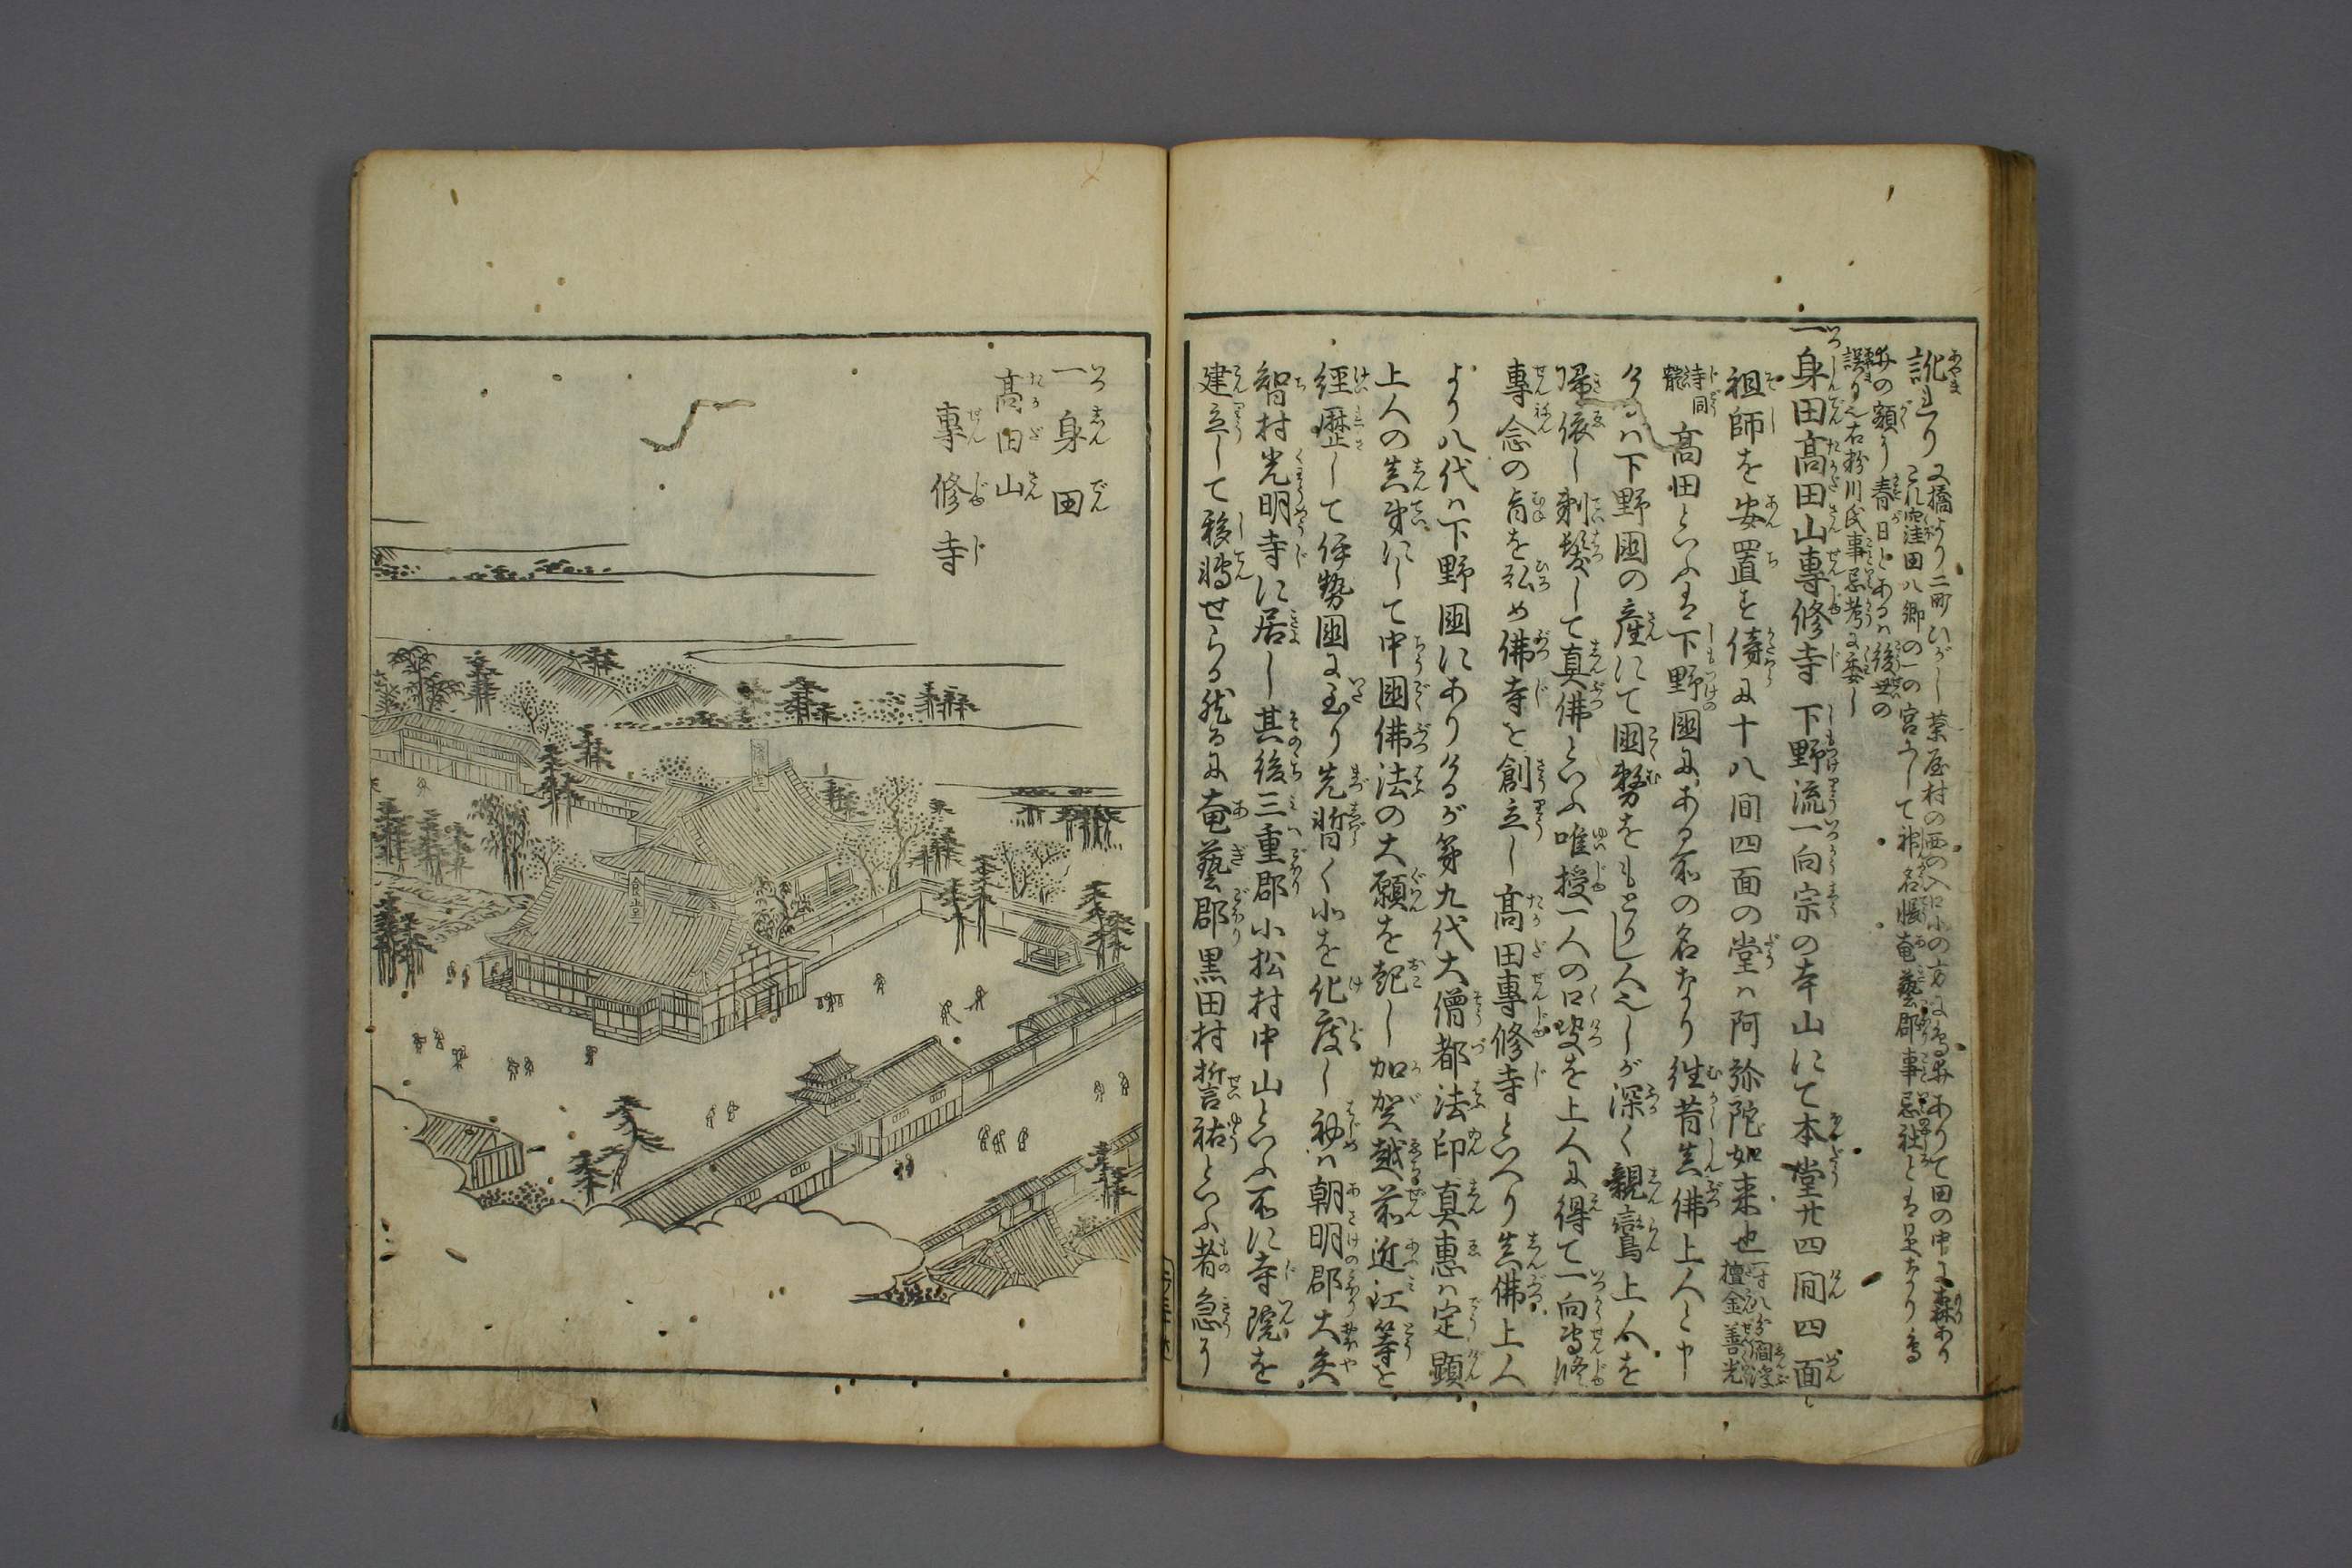 訛れり 又橋より二町ひがし 薬屋村の西の入口小の方に鳥井ありて田の中に森あり
これ窪田八郷の一の宮にして神名帳奄藝郡事忌社とは是なり鳥
井の額に春日とあるは後世の
誤り也右粉川氏事忌考に委し
一身田高田山專修寺 下野流一向宗の本山にて本堂廿四間四面
祖師を安置す傍に十八間四面の堂は阿弥陀如来也 一寸八分閻浮
檀金善光
寺同
體 高田といふは下野國にある所の名なり往昔真佛上人と申
けるは下野國の産にて國務をもとりし人也しが深く親鸞上人を
帰依し剃髪して真佛といふ唯授一人の口授を上人に得て一向専修
專念の旨を弘め佛寺を創立し高田專修寺といへり真佛上人
より八代は下野國にありけるが第九代大僧都法印真惠は定顕
上人の真弟にして中國佛法の大願を起し加賀越前近江等を
經歴して伊勢國に至り先暫く小を化度し初は朝明郡大矣
智村光明寺に居し其後三重郡小松村中山といふ所に寺院を
建立して移轉せらる然るに奄藝郡黒田村哲祐といふ者急に
一身田
高田山
專修寺